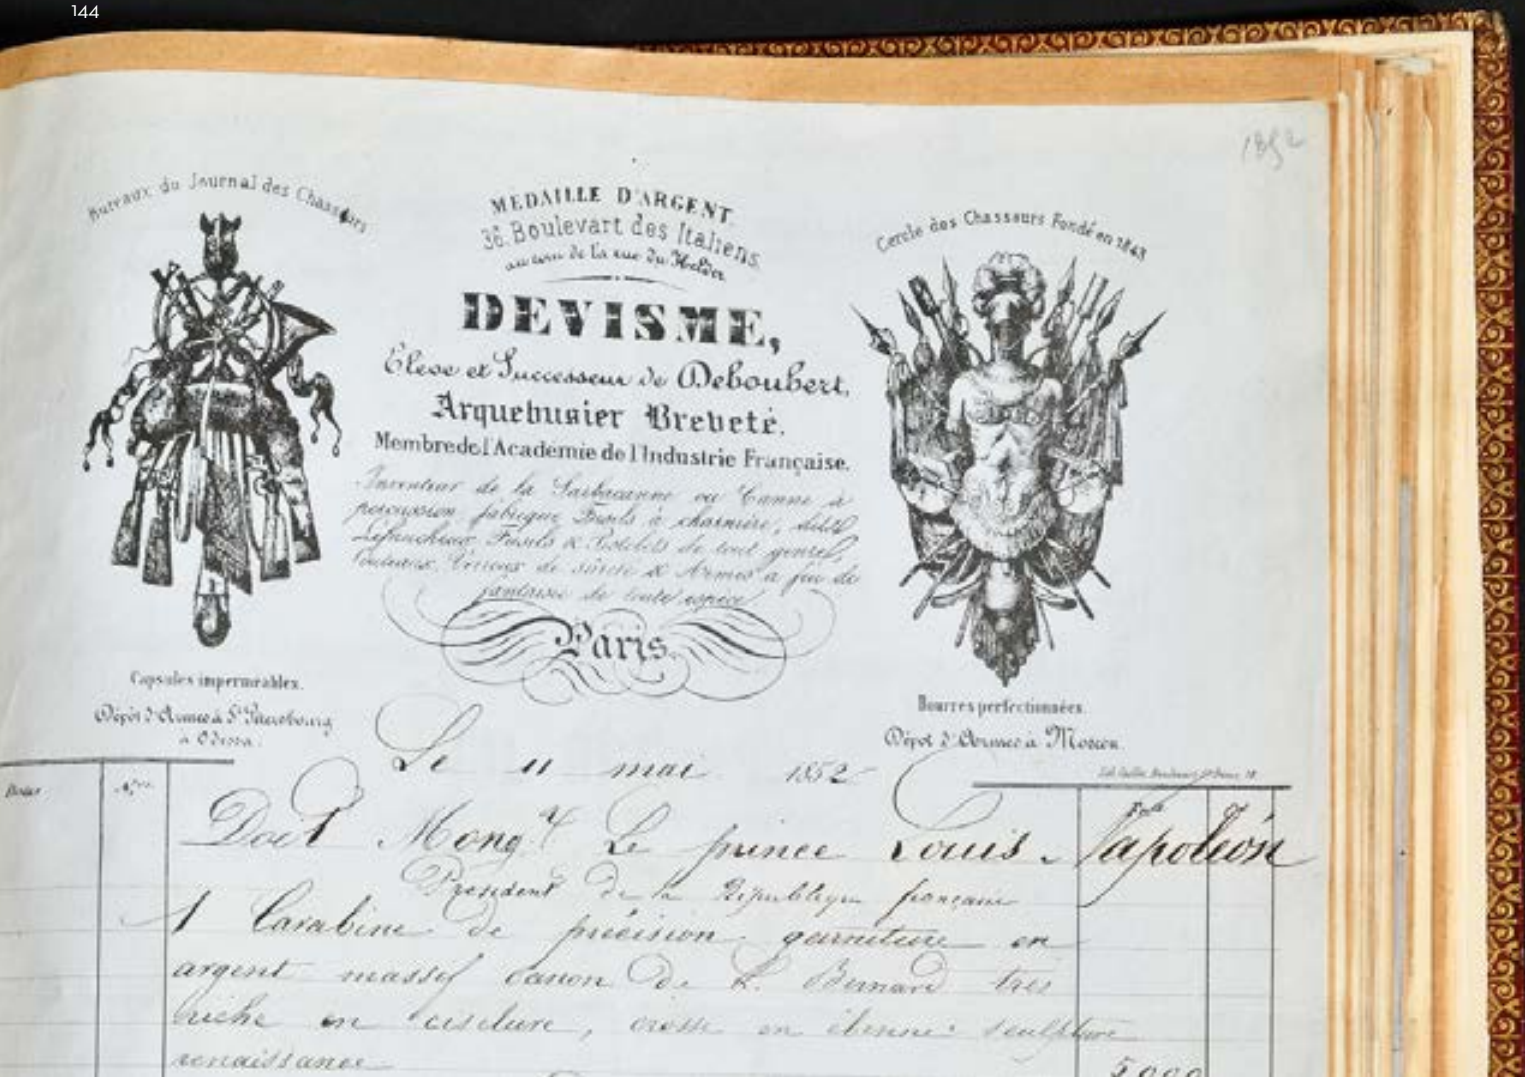 144
1852
Bureaux du Journal des Chasseurs
MEDAILLE D'ARGENT.
36. Boulevart des Italiens.
au coin de la rue du Helder
Cercle des Chasseurs Fondé en 1843
DEVISME,
Eleve et Successeur de Deboubert,
Arquebusier Breveté.
Membre de l'Académie de l'Industrie Française.
Inventeur de la Sarbacanne ou Canne à
percussion, fabrique Fusils à charnière, dits
Lefaucheux, Fusils & Pistolets de tout genre,
Couteaux, Verroux de sûreté & Armes à feu de
fantaisie de toute espèce
Paris.
Capsules imperméables.
Dépôt d'Armes à St. Pétersbourg
à Odessa.
Bourres perfectionnées.
Dépôt d'Armes à Moscou.
Le 11 mai 1852
Doit Mong.r Le prince Louis Napoléon
Président de la République française
1 Carabine de précision garniture en
argent massif canon de L. Bernard très
riche en ciselure, crosse en ébenne sculpture
renaissance 5,000